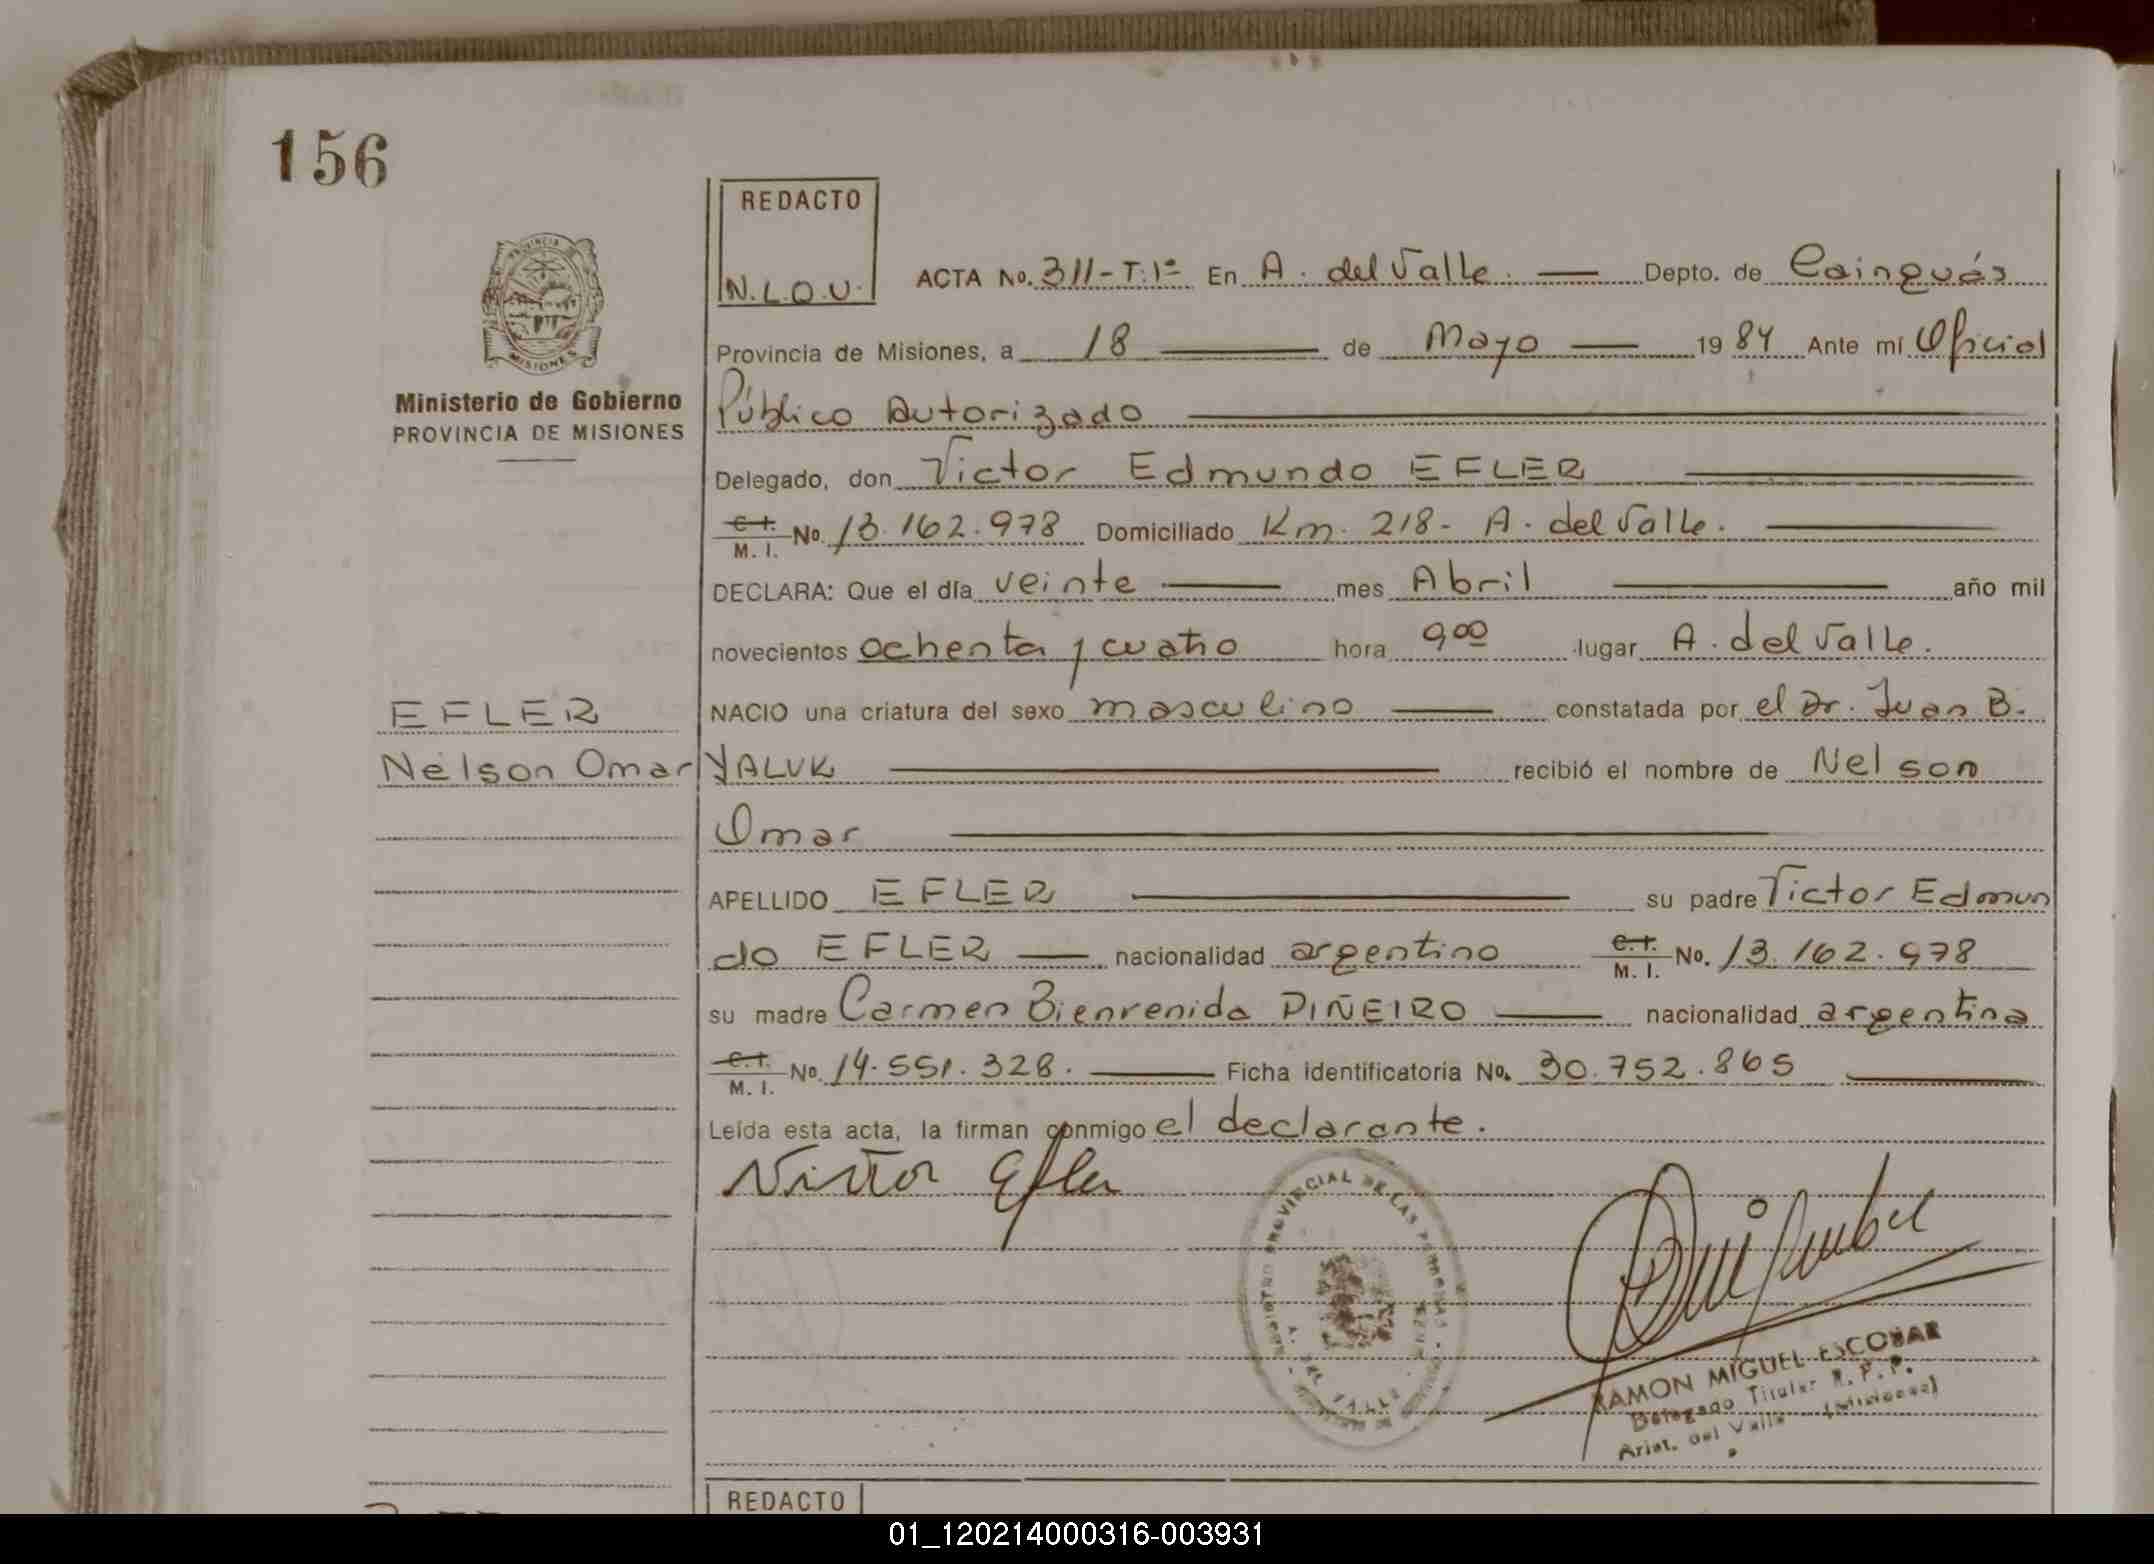 156
REDACTO
N.L.O.U.
PROVINCIA
MISIONES
Ministerio de Gobierno
PROVINCIA DE MISIONES
ACTA No. 311-T:1º En A. del Valle. Depto. de Cainguás
Provincia de Misiones, a 18 de Mayo 1984 Ante mí Oficial
Público Autorizado
Delegado, don Victor Edmundo EFLER
C.I. M.I. No. 13.162.978 Domiciliado Km. 218- A. del Valle.
DECLARA: Que el día veinte mes Abril año mil
novecientos ochenta y cuatro hora 9 00 lugar A. del Valle.
EFLER
NACIO una criatura del sexo masculino constatada por el Dr. Juan B.
Nelson Omar
YALUK recibió el nombre de Nelson
Omar
APELLIDO EFLER su padre Victor Edmun
do EFLER nacionalidad argentino C.I. M.I. No. 13.162.978
su madre Carmen Bienvenida PIÑEIRO nacionalidad argentina
C.I. M.I. No. 14.551.328. Ficha identificatoria No. 30.752.865
Leída esta acta, la firman conmigo el declarante.
Victor Efler
REGISTRO PROVINCIAL DE LAS PERSONAS
A. DEL VALLE
RAMON MIGUEL ESCOBAR
Delegado Titular R.P.P.
Arist. del Valle (Misiones)
REDACTO
01_120214000316-003931